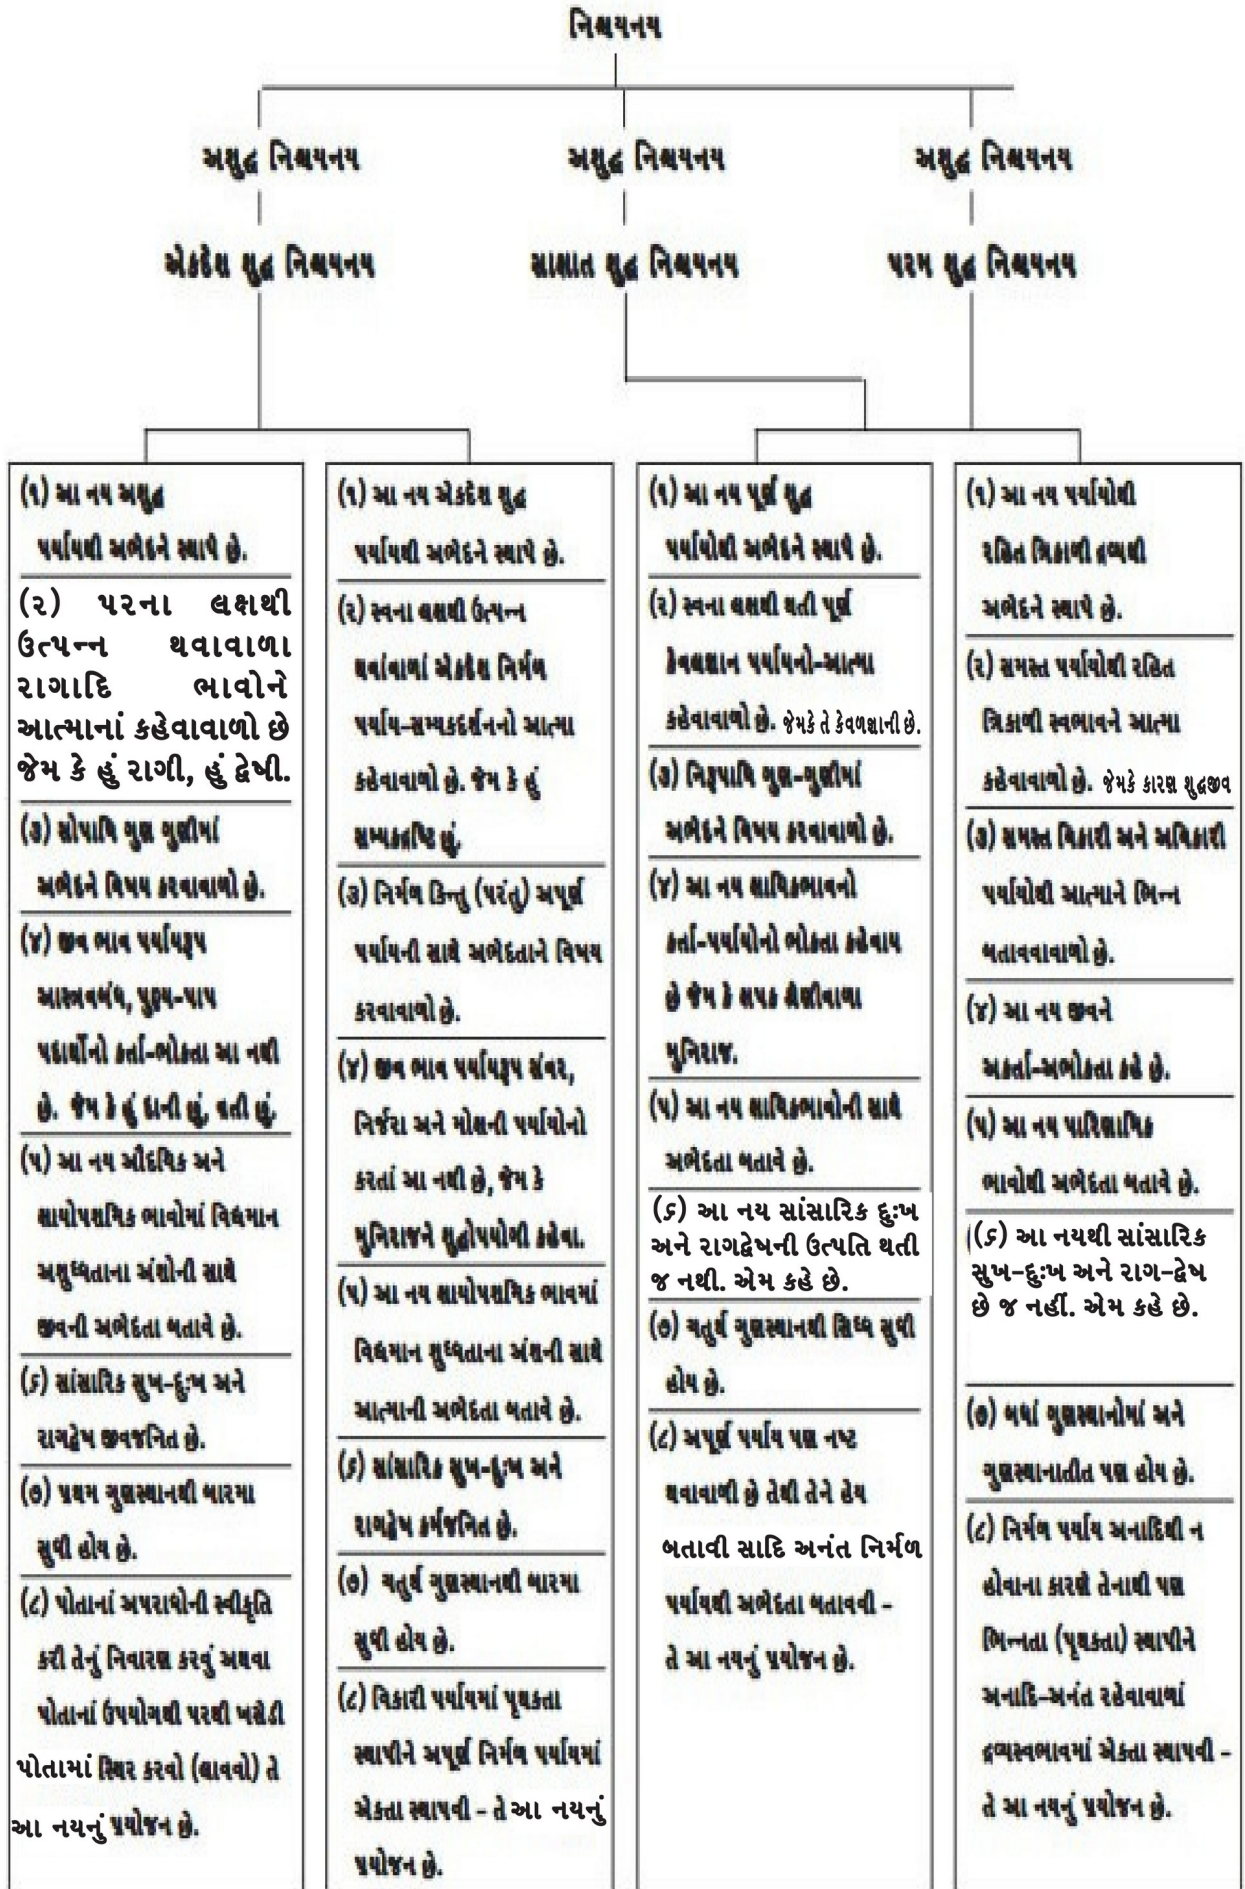 નિશ્ચયનય
અશુદ્ધ નિશ્ચયનય
અશુદ્ધ નિશ્ચયનય
અશુદ્ધ નિશ્ચયનય
એકદેશ શુદ્ધ નિશ્ચયનય
સાક્ષાત શુદ્ધ નિશ્ચયનય
પરમ શુદ્ધ નિશ્ચયનય
(૧) આ નય અશુદ્ધ
પર્યાયથી અભેદને સ્થાપે છે.
(૨) પરના લક્ષથી
ઉત્પન્ન થવાવાળા
રાગાદિ ભાવોને
આત્માનાં કહેવાવાળો છે
જેમ કે હું રાગી, હું દ્વેષી.
(૩) સોપાધિ ગુણ ગુણીમાં
અભેદને વિષય કરવાવાળો છે.
(૪) જીવ ભાવ પર્યાયરૂપ
આસ્ત્રવબંધ, પુણ્ય-પાપ
પદાર્થોનો કર્તા-ભોક્તા આ નથી
છે. જેમ કે હું દાની છું, વ્રતી છું.
(૫) આ નય ઔદયિક અને
ક્ષાયોપશમિક ભાવોમાં વિદ્યમાન
અશુધ્ધતાના અંશોની સાથે
જીવની અભેદતા બતાવે છે.
(૬) સાંસારિક સુખ-દુઃખ અને
રાગદ્વેષ જીવજનિત છે.
(૭) પ્રથમ ગુણસ્થાનથી બારમા
સુધી હોય છે.
(૮) પોતાનાં અપરાધોની સ્વીકૃતિ
કરી તેનું નિવારણ કરવું અથવા
પોતાનાં ઉપયોગથી પરથી ખસેડી
પોતામાં સ્થિર કરવો (લાવવો) તે
આ નયનું પ્રયોજન છે.
(૧) આ નય એકદેશ શુદ્ધ
પર્યાયથી અભેદને સ્થાપે છે.
(૨) સ્વના લક્ષથી ઉત્પન્ન
થવાંવાળાં એકદેશ નિર્મળ
પર્યાય-સમ્યકદર્શનનો આત્મા
કહેવાવાળો છે. જેમ કે હું
સમ્યકદ્રષ્ટિ છું.
(૩) નિર્મળ કિન્તુ (પરંતુ) અપૂર્ણ
પર્યાયની સાથે અભેદતાને વિષય
કરવાવાળો છે.
(૪) જીવ ભાવ પર્યાયરૂપ સંવર,
નિર્જરા અને મોક્ષની પર્યાયોનો
કરતાં આ નથી છે, જેમ કે
મુનિરાજને શુદ્ધોપયોગી કહેવા.
(૫) આ નય ક્ષાયોપશમિક ભાવમાં
વિદ્યમાન શુધ્ધતાના અંશની સાથે
આત્માની અભેદતા બતાવે છે.
(૬) સાંસારિક સુખ-દુઃખ અને
રાગદ્વેષ કર્મજનિત છે.
(૭) ચતુર્થ ગુણસ્થાનથી બારમા
સુધી હોય છે.
(૮) વિકારી પર્યાયમાં પૃથકતા
સ્થાપીને અપૂર્ણ નિર્મળ પર્યાયમાં
એકતા સ્થાપવી - તે આ નયનું
પ્રયોજન છે.
(૧) આ નય પૂર્ણ શુદ્ધ
પર્યાયોથી અભેદને સ્થાપે છે.
(૨) સ્વના લક્ષથી થતી પૂર્ણ
કેવલજ્ઞાન પર્યાયનો-આત્મા
કહેવાવાળો છે. જેમકે તે કેવળજ્ઞાની છે.
(૩) નિરૂપાધિ ગુણ-ગુણીમાં
અભેદને વિષય કરવાવાળો છે.
(૪) આ નય ક્ષાયિકભાવનો
કર્તા-પર્યાયોનો ભોક્તા કહેવાય
છે જેમ કે ક્ષપક શ્રેણીવાળા
મુનિરાજ.
(૫) આ નય ક્ષાયિકભાવોની સાથે
અભેદતા બતાવે છે.
(૬) આ નય સાંસારિક દુઃખ
અને રાગદ્વેષની ઉત્પતિ થતી
જ નથી. એમ કહે છે.
(૭) ચતુર્થ ગુણસ્થાનથી સિધ્ધ સુધી
હોય છે.
(૮) અપૂર્ણ પર્યાય પણ નષ્ટ
થવાવાળી છે તેથી તેને હેય
બતાવી સાદિ અનંત નિર્મળ
પર્યાયથી અભેદતા બતાવવી -
તે આ નયનું પ્રયોજન છે.
(૧) આ નય પર્યાયોથી
રહિત ત્રિકાળી દ્રવ્યથી
અભેદને સ્થાપે છે.
(૨) સમસ્ત પર્યાયોથી રહિત
ત્રિકાળી સ્વભાવને આત્મા
કહેવાવાળો છે. જેમકે કારણ શુદ્ધજીવ
(૩) સમસ્ત વિકારી અને અવિકારી
પર્યાયોથી આત્માને ભિન્ન
બતાવવાવાળો છે.
(૪) આ નય જીવને
અકર્તા-અભોક્તા કહે છે.
(૫) આ નય પારિણામિક
ભાવોથી અભેદતા બતાવે છે.
(૬) આ નયથી સાંસારિક
સુખ-દુઃખ અને રાગ-દ્વેષ
છે જ નહીં. એમ કહે છે.
(૭) બધાં ગુણસ્થાનોમાં અને
ગુણસ્થાનાતીત પણ હોય છે.
(૮) નિર્મળ પર્યાય અનાદિથી ન
હોવાના કારણે તેનાથી પણ
ભિન્નતા (પૃથકતા) સ્થાપીને
અનાદિ-અનંત રહેવાવાળાં
દ્રવ્યસ્વભાવમાં એકતા સ્થાપવી -
તે આ નયનું પ્રયોજન છે.